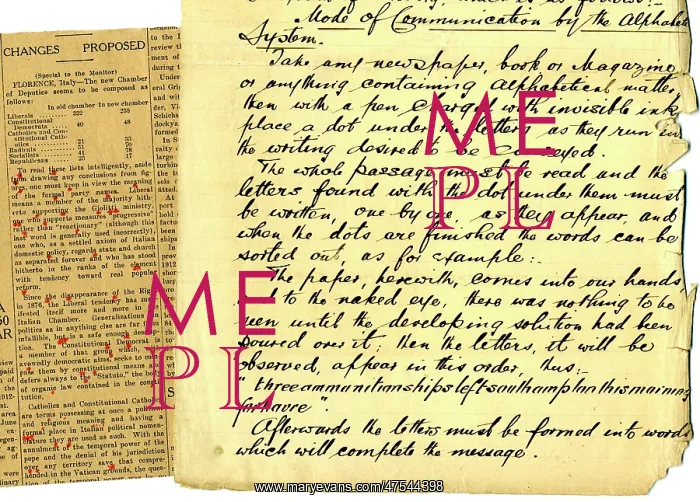 CHANGES PROPOSED
(Special to the Monitor)
FLORENCE, Italy—The new Chamber
of Deputies seems to be composed as
follows:
In old chamber In new chamber
Liberals 322 235
Constitutional
Democrats 40 48
Catholics and Con-
stitutional Cath-
olics 21 33
Radicals 51 70
Socialists 25 78
Republicans 23 17
To read these lists intelligently, aside
from drawing any conclusions from fig-
ures, one must keep in view the meaning
of the formal party names. Liberal
means a member of the majority hith-
erto supporting the Giolitti ministry,
who supports measures "progressive"
rather than "reactionary" (although this
last word is generally used incorrectly),
one who, as a settled axiom of Italian
domestic policy, regards state and church
as separated forever and who has stood
hitherto in the ranks of the element
with tendency toward real popular
reform.
Since the disappearance of the Right
in 1876, the Liberal tendency has man-
ifested itself more and more in the
Italian Chamber. Generalization in
politics as in anything else are far from
infallible, but is a safe enough
tion. The Constitutional Democrat
a member of that group which, with
avowedly democratic aims, seeks to
them by constitutional means and
defers always to the "Statuto," the body
of organic law contained in the consti-
tution.
Catholics and Constitutional Catholics
are terms possessing at once a political
and religious meaning and having a
formal place in Italian political nomen-
clature they are used as such. With the
annulment of the temporal power of the
pope and the denial of his jurisdiction
over any territory save that compre-
hended in the Vatican grounds, the ques-
tion of temporal power
Mode of Communication by the Alphabet
System.
Take any newspaper, book or Magazine
or anything containing Alphabetical matter,
then with a pen charged with invisible ink
place a dot under the letters as they run in
the writing desired to be conveyed.
The whole passage must be read and the
letters found with the dot under them must
be written, one by one, as they appear, and
when the dots are finished the words can be
sorted out, as for example:-
The paper, herewith, comes into our hands
to the naked eye, there was nothing to be
seen until the developing solution had been
poured over it; then the letters, it will be
observed, appear in this order, thus:-
"threeammunitionshipsleftsouthamptonthismorning
forhavre".
Afterwards the letters must be formed into words
which will complete the message.
ME
PL
ME
PL
www.maryevans.com/47544398